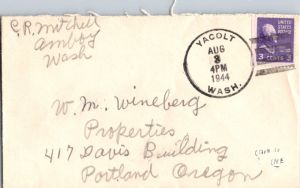 C.R. Mitchell
Amboy
Wash
YACOLT
AUG
3
4PM
1944
WASH.
UNITED STATES
POSTAGE
3 CENTS 3
W. M. Wineberg
Properties
417 Davis Building
Portland Oregon